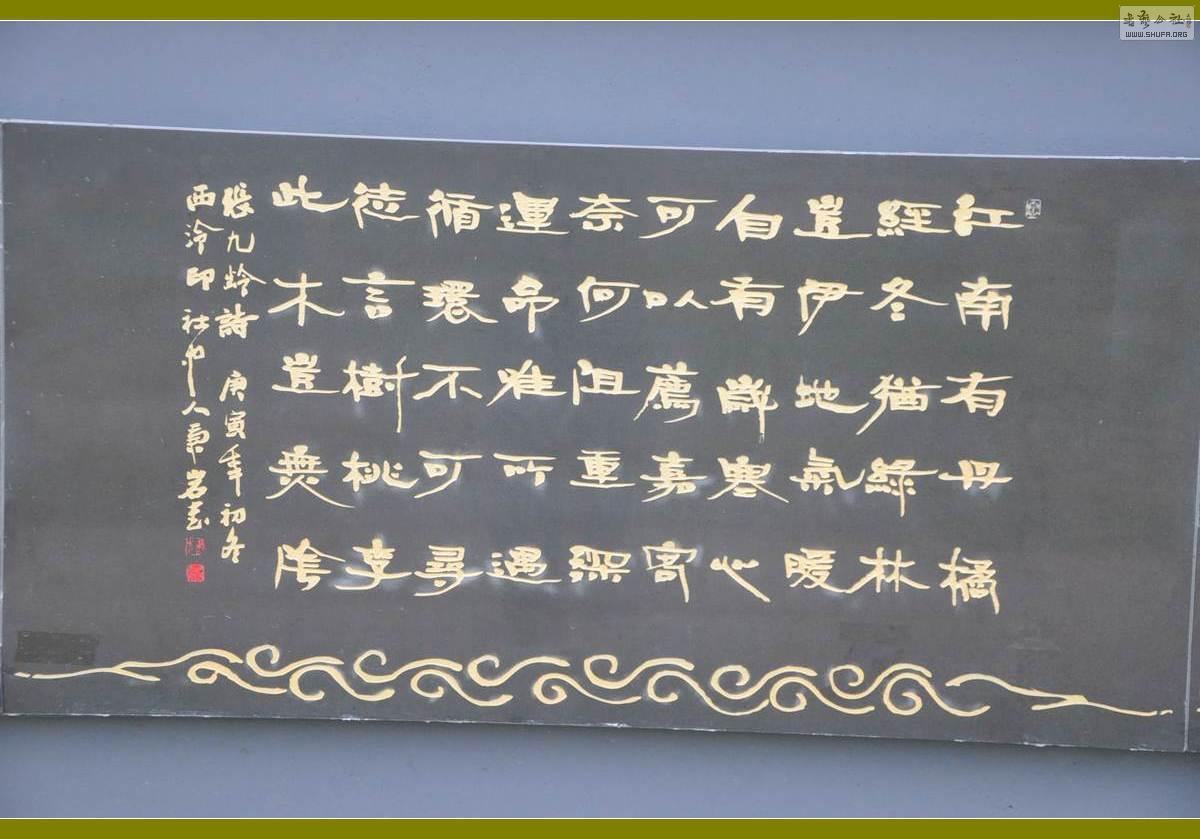 江南有丹橘
經冬猶綠林
豈伊地氣暖
自有歲寒心
可以薦嘉客
奈何阻重深
運命唯所遇
循環不可尋
徒言樹桃李
此木豈無陰
張九齡詩 庚寅年初冬
西泠印社中人
WWW.SHUFA.ORG